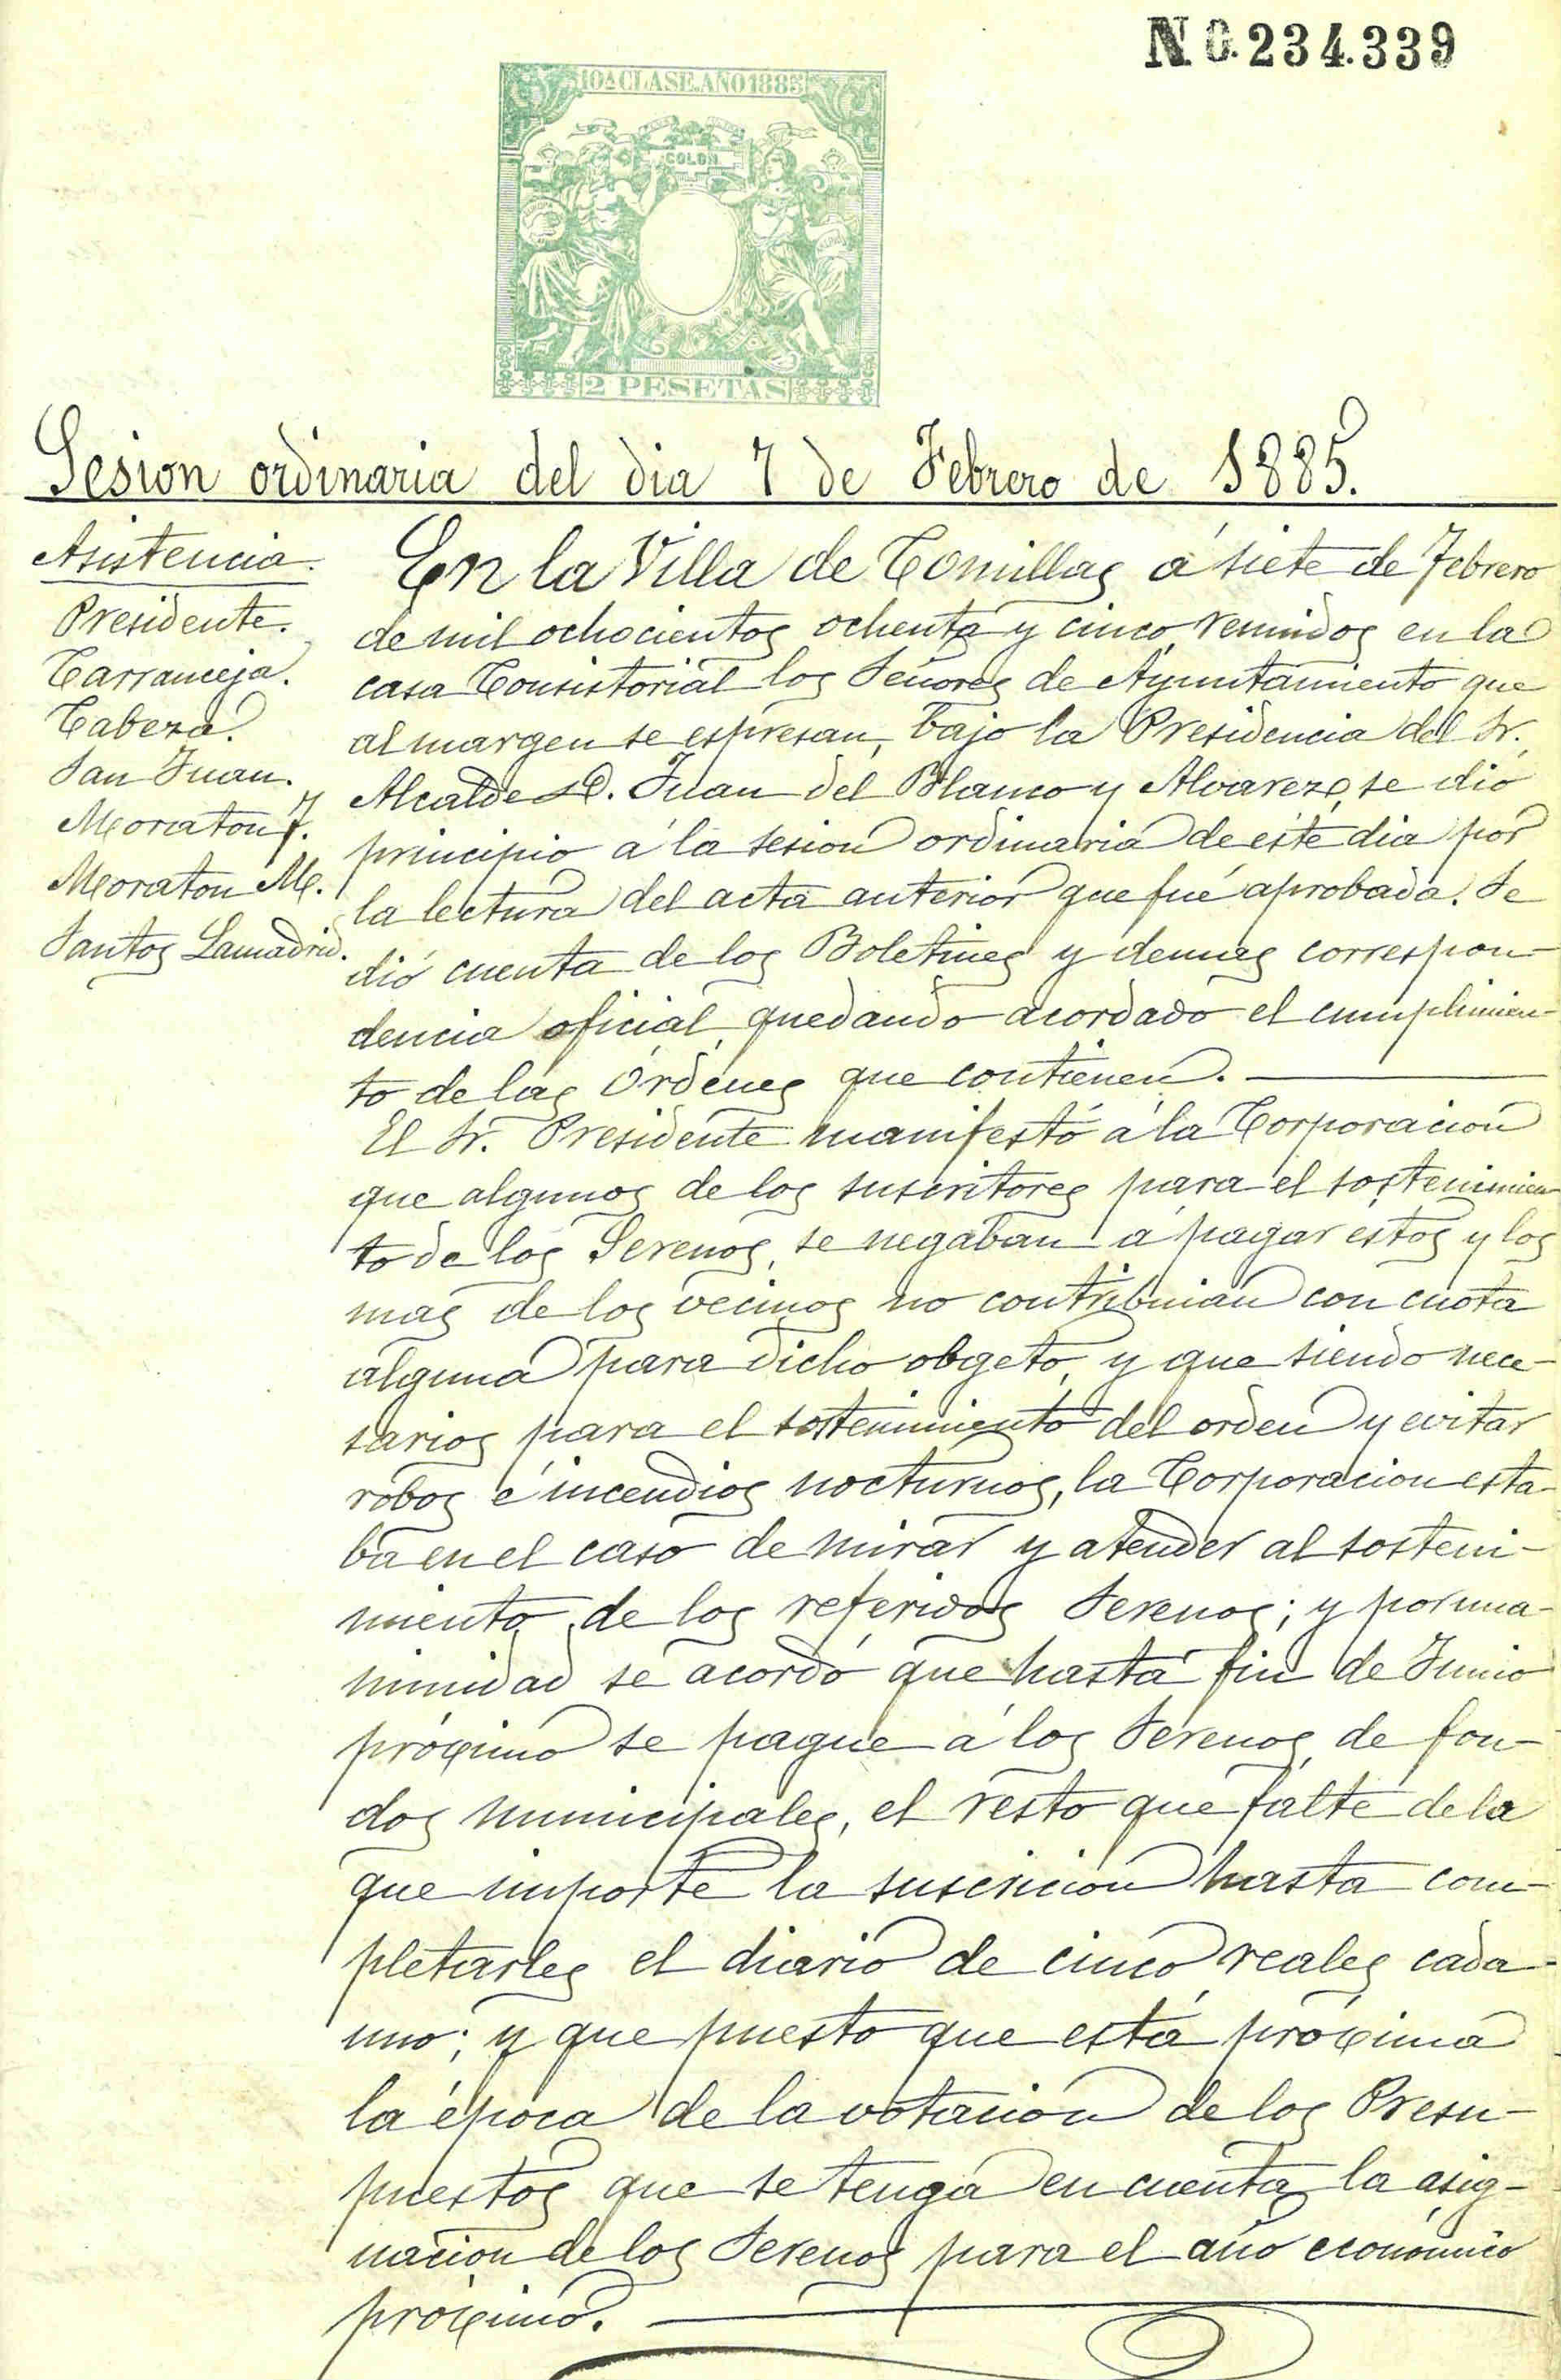 N 0.234.339
10ª CLASE. AÑO 1885
COLON
2 PESETAS
Sesion ordinaria del dia 7 de Febrero de 1885.
Asistencia.
Presidente.
Carranceja.
Cabeza.
San Juan.
Moraton F.
Moraton M.
Santos Lamadrid.
En la Villa de Comillas á siete de Febrero
de mil ochocientos ochenta y cinco reunidos en la
casa Consistorial los Señores de Ayuntamiento que
al margen se espresan, bajo la Presidencia del Sr.
Alcalde D. Juan del Blanco y Alvarez, se dió
principio á la sesion ordinaria de este dia por
la lectura del acta anterior que fué aprobada. Se
dió cuenta de los Boletines y demas correspon-
dencia oficial, quedando acordado el cumplimien-
to de las Órdenes que contienen.
El Sr. Presidente manifestó á la Corporacion
que algunos de los suscritores para el sostenimien-
to de los Serenos, se negaban á pagar estos y los
mas de los vecinos no contribuian con cuota
alguna para dicho obgeto, y que siendo nece-
sarios para el sostenimiento del orden y evitar
robos é incendios nocturnos, la Corporacion esta-
ba en el caso de mirar y atender al sosteni-
miento de los referidos Serenos; y por una-
nimidad se acordó que hasta fin de Junio
próximo se pague á los Serenos de fon-
dos municipales, el resto que falte de la
que importe la suscricion hasta com-
pletarles el diario de cinco reales cada
uno; y que puesto que está próxima
la época de la votacion de los Presu-
puestos que se tenga en cuenta la asig-
nacion de los Serenos para el año económico
próximo.